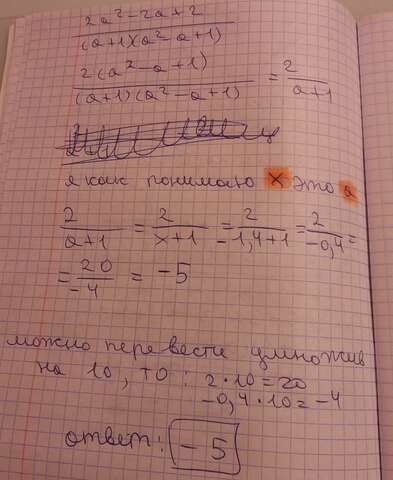 2a²-2a+2
(a+1)(a²-a+1)
2(a²-a+1)
(a+1)(a²-a+1) = 2
a+1
я как понимаю x это a
2 = 2 = 2 = 2 =
a+1 x+1 -1,4+1 -0,4
= 20 = -5
-4
можно перевести умножив
на 10, то: 2·10=20
-0,4·10=-4
ответ: -5